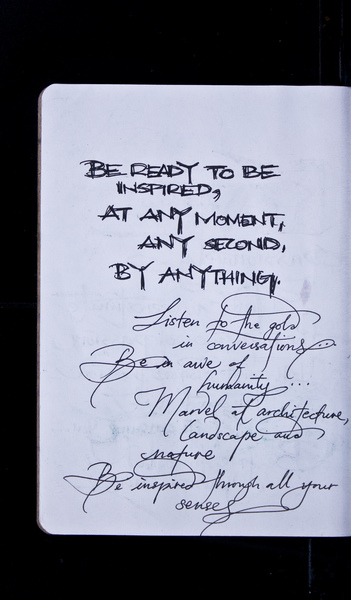 BE READY TO BE
INSPIRED,
AT ANY MOMENT,
ANY SECOND,
BY ANYTHING.
Listen to the gold
in conversations...
Be in awe of
humanity...
Marvel at architecture,
landscape and
nature
Be inspired through all your
senses